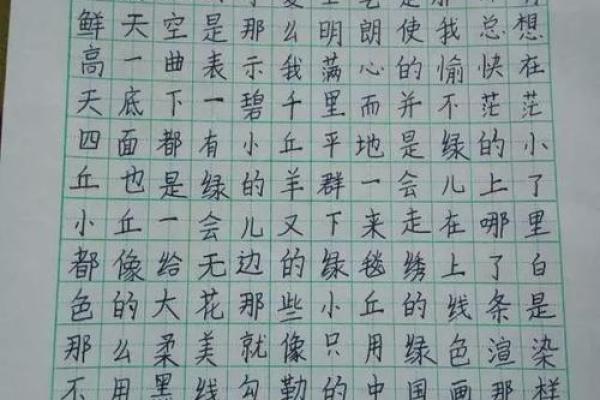 鲜天空是那么明朗使我总想
高一曲表示我满心的愉快在
天底下一碧千里而并不茫茫
四面都有小丘平地是绿的小
丘也是绿的羊群一会儿上了
小丘一会儿又下来走在哪里
都像给无边的绿毯绣上了白
色的大花那些小丘的线条是
那么柔美就像只用绿色渲染
不用墨线勾勒的中国画那样